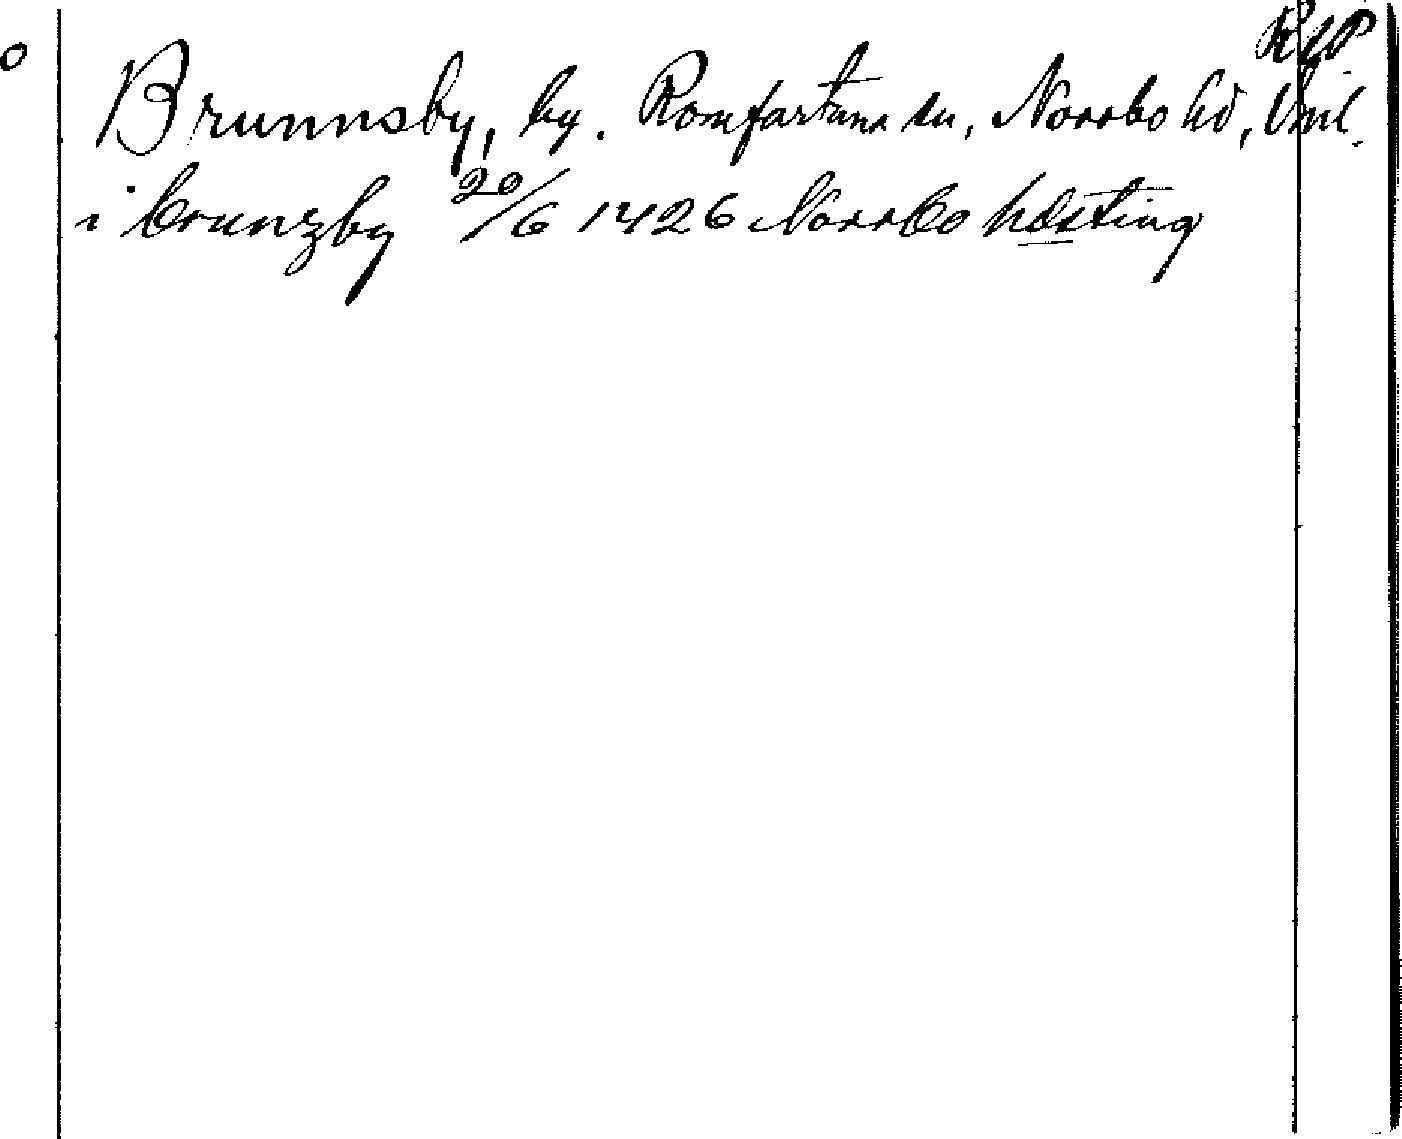 RäP
o
Brunnsby, by. Romfartuna sn, Norrbo hd, Vml.
i brunzby 20/6 1426 Norrbo hdsting